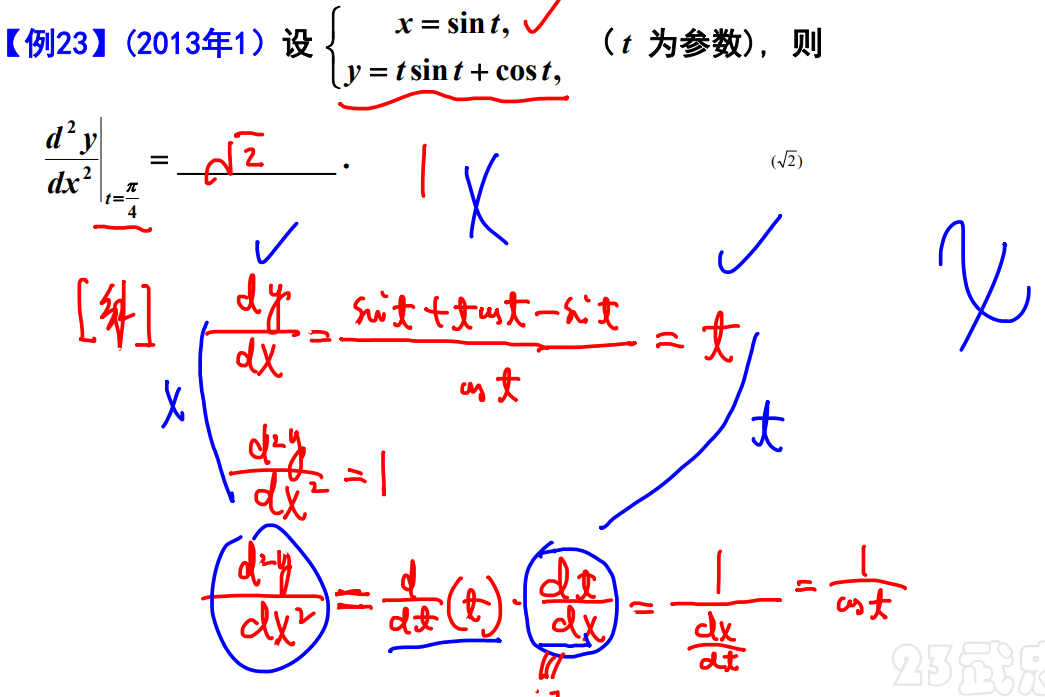 【例23】(2013年1) 设 { x = sin t, y = t sin t + cos t, （t 为参数），则
d²y/dx² |t=π/4 = √2 . (√2)
1 X
[解] dy/dx = (sin t + t cos t − sin t)/cos t = t
x t
d²y/dx² = 1
d²y/dx² = d/dt (t) · dt/dx = 1/(dx/dt) = 1/cos t
23武忠